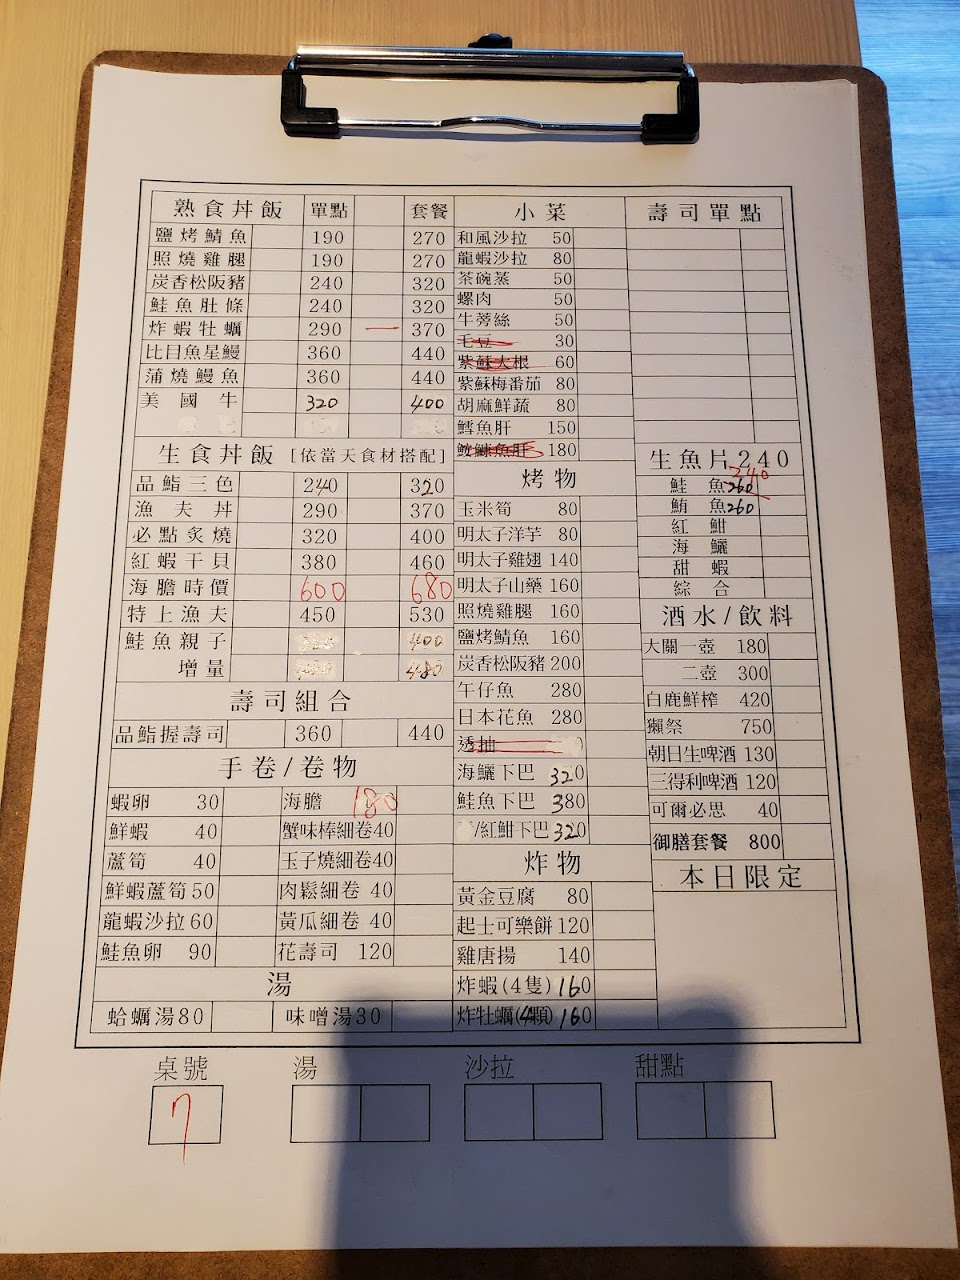 熟食丼飯 單點 套餐
鹽烤鯖魚 190 270
照燒雞腿 190 270
炭香松阪豬 240 320
鮭魚肚條 240 320
炸蝦牡蠣 290 一 370
比目魚星鰻 360 440
蒲燒鰻魚 360 440
美國牛 320 400
生食丼飯 [依當天食材搭配]
品鮨三色 240 320
漁夫丼 290 370
必點炙燒 320 400
紅蝦干貝 380 460
海膽時價 600 680
特上漁夫 450 530
鮭魚親子 400
增量 480
壽司組合
品鮨握壽司 360 440
手卷/卷物
蝦卵 30 海膽 180
鮮蝦 40 蟹味棒細卷40
蘆筍 40 玉子燒細卷40
鮮蝦蘆筍50 肉鬆細卷 40
龍蝦沙拉60 黃瓜細卷 40
鮭魚卵 90 花壽司 120
湯
蛤蠣湯80 味噌湯30
小菜
和風沙拉 50
龍蝦沙拉 80
茶碗蒸 50
螺肉 50
牛蒡絲 50
毛豆 30
紫蘇大根 60
紫蘇梅番茄 80
胡麻鮮蔬 80
鱈魚肝 150
鮟鱇魚肝 180
烤物
玉米筍 80
明太子洋芋 80
明太子雞翅 140
明太子山藥 160
照燒雞腿 160
鹽烤鯖魚 160
炭香松阪豬 200
午仔魚 280
日本花魚 280
透抽
海鱺下巴 320
鮭魚下巴 380
/紅魽下巴 320
炸物
黃金豆腐 80
起士可樂餅 120
雞唐揚 140
炸蝦(4隻) 160
炸牡蠣(4顆) 160
壽司單點
生魚片240
鮭魚 260 240
鮪魚 260
紅魽
海鱺
甜蝦
綜合
酒水/飲料
大關一壺 180
二壺 300
白鹿鮮榨 420
獺祭 750
朝日生啤酒 130
三得利啤酒 120
可爾必思 40
御膳套餐 800
本日限定
桌號 湯 沙拉 甜點
7